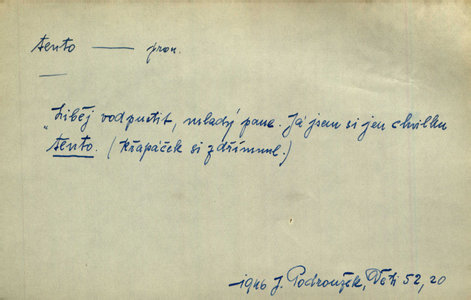 tento —— pron.
—
„Liběj vodpustit, mladý pane. Já jsem si jen chvilku
tento. (Křapáček si zdřímnul.)
1946 J. Podroužek, Děti 52, 20